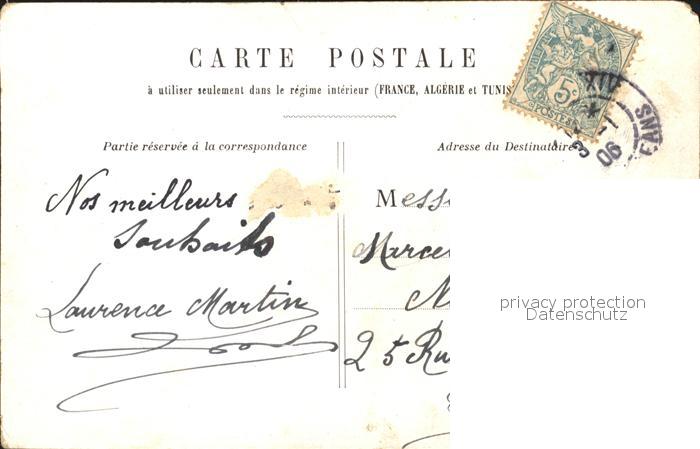 CARTE POSTALE
à utiliser seulement dans le régime intérieur (FRANCE, ALGÉRIE et TUNIS
Partie réservée à la correspondance
Adresse du Destinataire
5c
POSTES
XIV
06
Nos meilleurs
Souhaits
Laurence Martin
Mess
Marce
25 Ru
privacy protection
Datenschutz